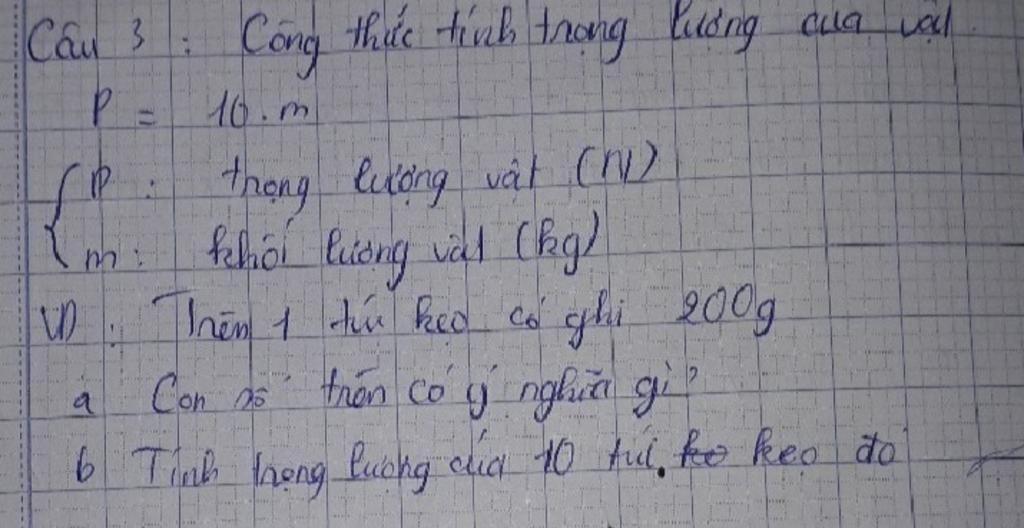 Câu 3 : Công thức tính trọng lượng của vật.
P = 10.m
{ P : trọng lượng vật (N)
m : khối lượng vật (kg)
VD : Trên 1 túi kẹo có ghi 200g
a Con số trên có ý nghĩa gì?
b Tính trọng lượng của 10 túi. ke kẹo đó